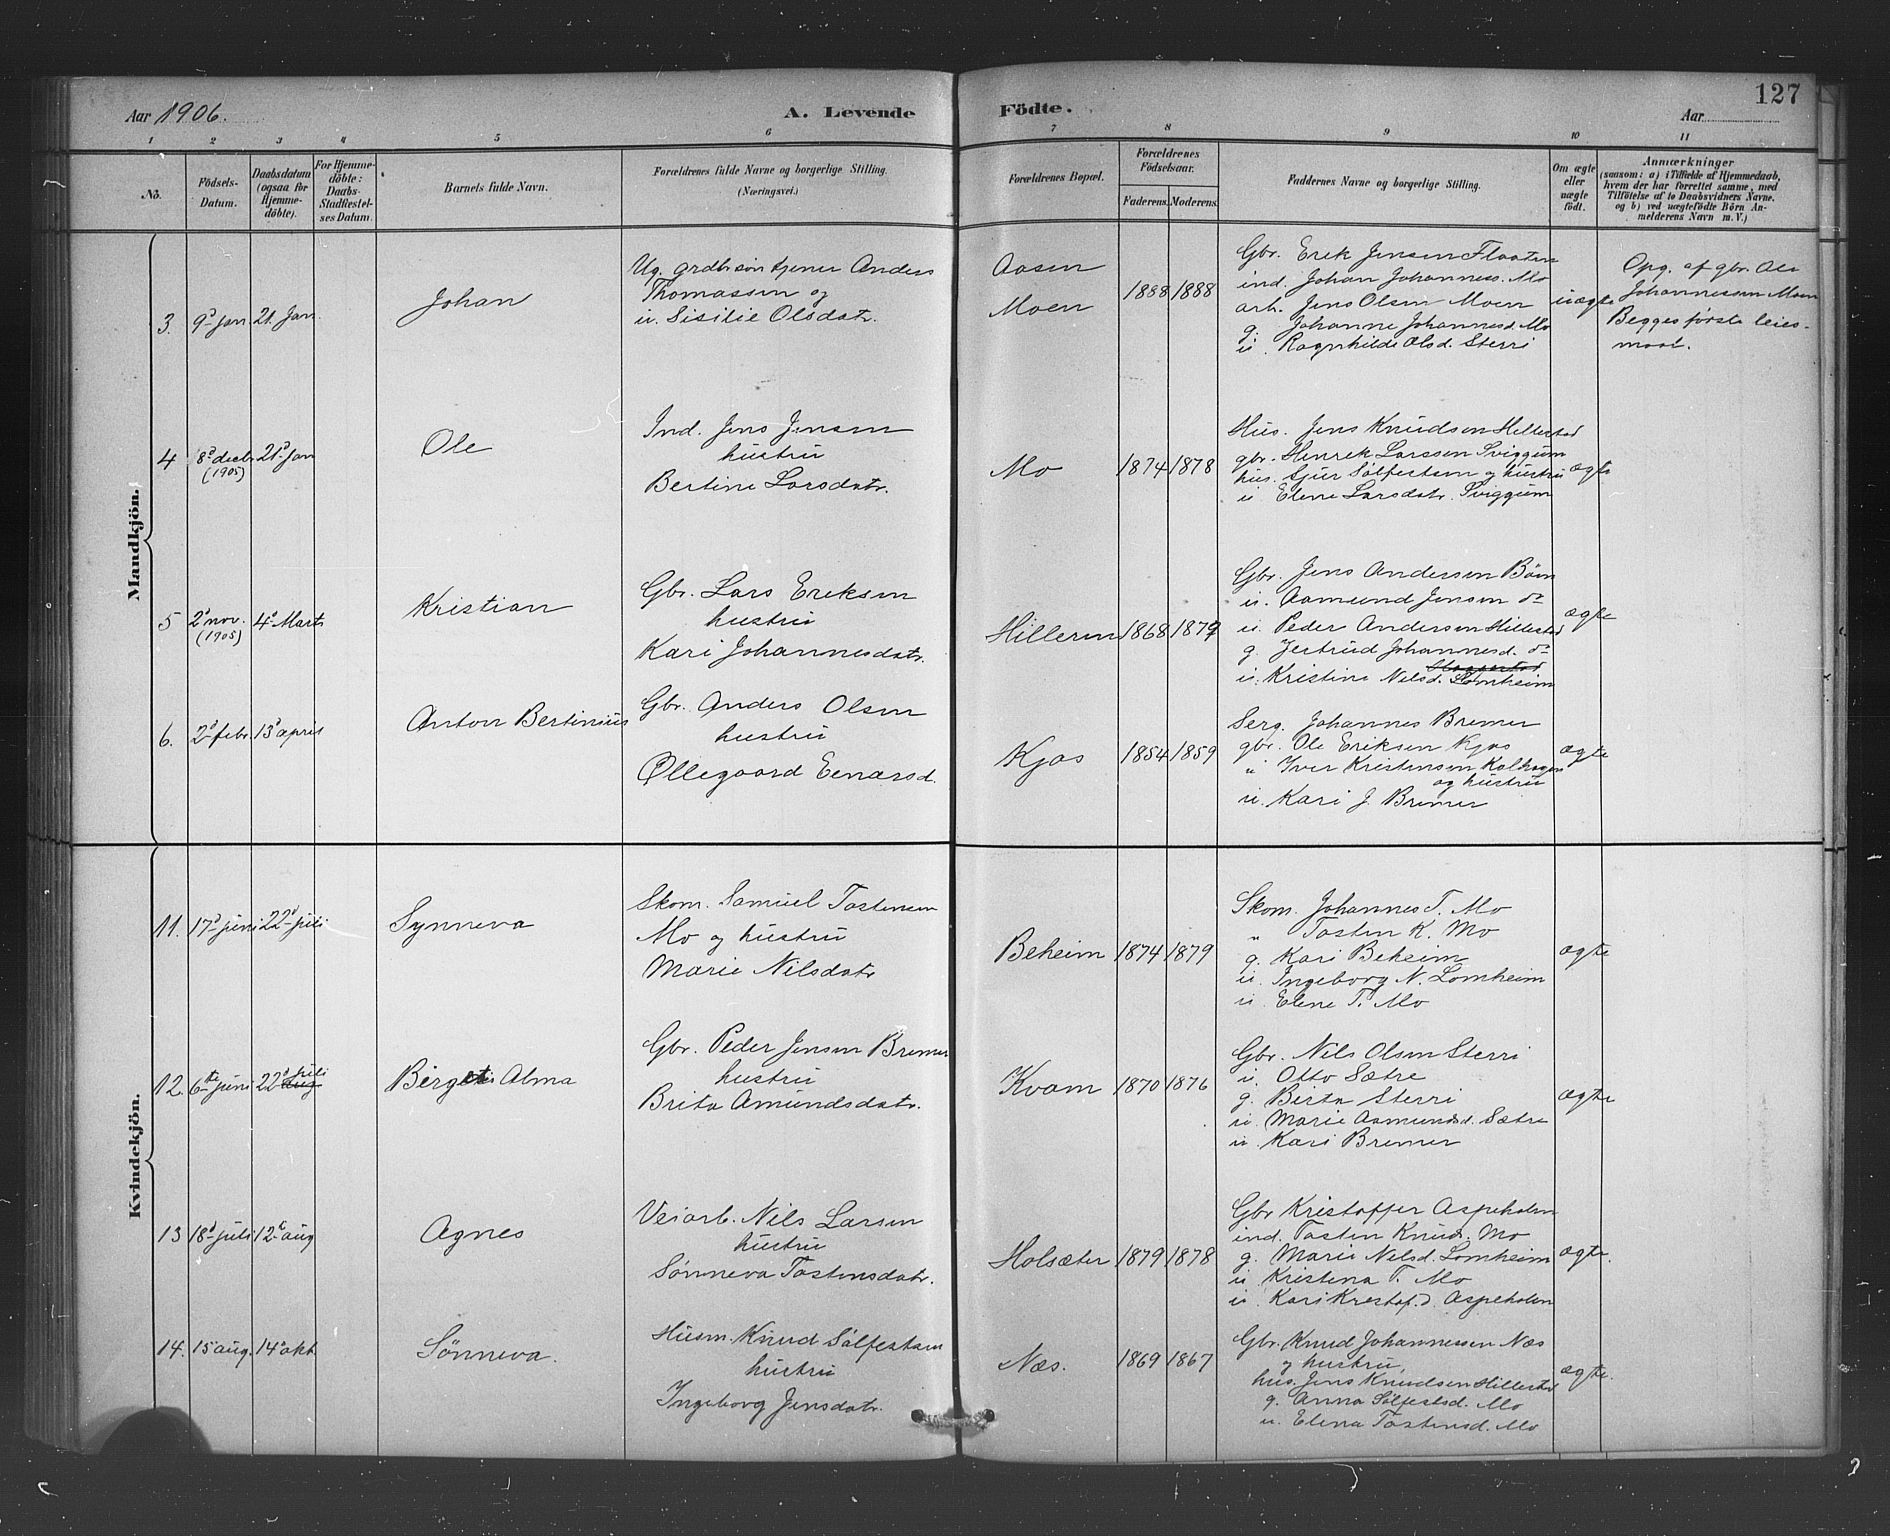 127
Aar 1906.
A. Levende
Födte.
Aar
1 2 3 4 5 6 7 8 9 10 11
No.
Födsels-
Datum.
Daabsdatum
(ogsaa for
Hjemme-
döbte).
For Hjemme-
döbte:
Daabs-
Stadfæstel-
ses Datum.
Barnets fulde Navn.
Forældrenes fulde Navne og borgerlige Stilling.
(Næringsvei.)
Forældrenes Bopæl.
Forældrenes
Födselsaar.
Faderens. Moderens.
Faddernes Navne og borgerlige Stilling.
Om ægte
eller
uægte
født.
Anmærkninger
(saasom: a) i Tilfælde af Hjemmedaab,
hvem der har forrettet samme, med
Tilföielse af to Daabsvidners Navne.
og b) ved uægtefödte Börn An-
melderens Navn m. V.)
Mandkjön.
3. 9d jan 21. jan.
Johan
Ug. grdbr.sön tjener Anders
Thomassen og
u. Sisilie Olsdatr.
Aasen
Moen
1888 1888
Gbr. Erik Jensen Flaaten
ind. Johan Johanness. Mo
arb. Jens Olsen Moen
g. Johanne Johannesd. Mo
u. Ragnhilde Olsd. Sterri
uægte
Opg. af gbr. Ole
Johannessen Moen
Begges første leies-
maal.
4 8d decbr (1905) 21d jan
Ole
Ind. Jens Jensen
hustru
Bertine Larsdatr.
Mo
1874 1878
Hus. Jens Knudsen Hillestad
gbr. Henrik Larssen Sviggum
hus. Sjur Sølfestsen og hustru
u. Elene Larsdatr. Sviggum
ægte
5 2d nov. (1905) 4d Marts
Kristian
Gbr. Lars Eriksen
hustru
Kari Johannesdatr.
Hilleren
1868 1879
Gbr. Jens Andersen Bøen
u. Aamund Jensen do
u. Peder Andersen Hillestad
g. Jertrud Johannesd. do
u. Kristine Nilsd. Lomheim
ægte
6. 2d febr. 13d april
Anton Bertinius
Gbr. Anders Olsen
hustru
Øllegaard Einarsd.
Kjos
1854 1859
Serg. Johannes Bremer
gbr. Ole Eriksen Kjos
" Iver Kristensen Kolhagen
og hustru
u. Kari J. Bremer
ægte
Kvindekjön.
11. 17d juni 22d juli
Synneva
Skom. Samuel Tostensen
Mo og hustru
Marie Nilsdatr
Beheim
1874 1879
Skom. Johannes T. Mo
" Tosten K. Mo
g. Kari Beheim
u. Ingeborg N. Lomheim
u. Elene T. Mo
ægte
12. 6te juni 22d aug juli
Birgit Alma
Gbr. Peder Jensen Bremer
hustru
Brita Amundsdatr.
Kvam
1870 1876
Gbr. Nils Olsen Sterri
u. Otto Sætre
g. Birta Sterri
u. Marie Aamundsd. Sætre
u. Kari Bremer
ægte
13 18d juli 12d aug
Agnes
Veiarb. Nils Larsen
hustru
Sønneva Tostensdatr.
Holsæter
1879 1878
Gbr Kristoffer Aspeholen
ind. Tosten Knud. Mo
g. Marie Nilsd. Lomheim
u Kristina T. Mo
u. Kari Krestof.d. Aspeholen
ægte.
14. 15 aug. 14d okt.
Sønneva.
Husm. Knud Sølfestsen
hustru
Ingeborg Jensdatr.
Næs.
1869 1867
Gbr. Knud Johannessen Næs
og hustru,
hus. Jens Knudsen Hillestad
g. Anna Sølfestsd. Mo
u. Elena Tostensd. Mo
ægte.